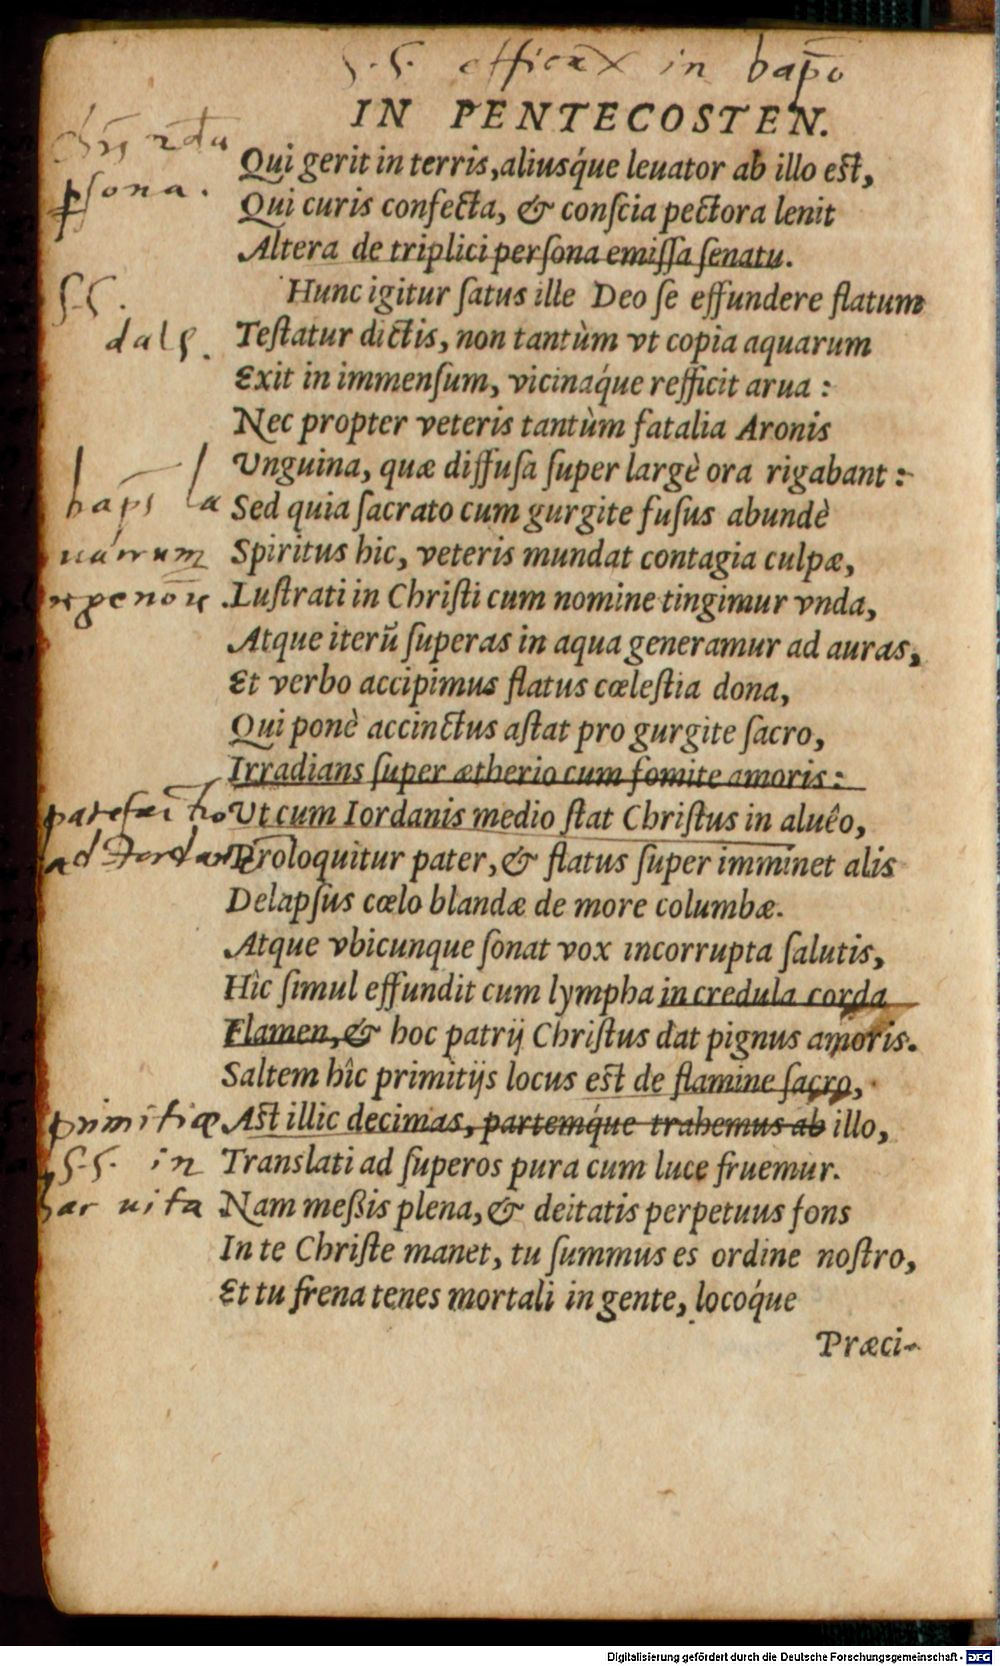 S. S. efficax in bap̄o
IN PENTECOSTEN.
Qui gerit in terris, aliusq́ue leuator ab illo est,
psona.
Qui curis confecta, & conſcia pectora lenit
Altera de triplici perſona emiſſa ſenatu.
S. S.
Hunc igitur ſatus ille Deo ſe effundere flatum
Teſtatur dictis, non tantùm vt copia aquarum
Exit in immenſum, vicinaq́ue refficit arua :
Nec propter veteris tantùm fatalia Aronis
Vnguina, quæ diffuſa ſuper largè ora rigabant :
bap̄s la
Sed quia ſacrato cum gurgite fuſus abundè
Spiritus hic, veteris mundat contagia culpæ,
Luſtrati in Chriſti cum nomine tingimur vnda,
Atque iterũ ſuperas in aqua generamur ad auras,
Et verbo accipimus flatus cœleſtia dona,
Qui ponè accinctus aſtat pro gurgite ſacro,
Irradians ſuper ætherio cum fomite amoris :
Vt cum Iordanis medio ſtat Chriſtus in aluêo,
ad Jordanē
Proloquitur pater, & flatus ſuper imminet alis
Delapſus cœlo blandæ de more columbæ.
Atque vbicunque ſonat vox incorrupta ſalutis,
Hîc ſimul effundit cum lympha in credula corda
Flamen, & hoc patrij Chriſtus dat pignus amoris.
Saltem hîc primitijs locus est de flamine ſacro,
primitiæ
Ast illic decimas, partemq́ue trahemus ab illo,
S. S. in
Translati ad ſuperos pura cum luce fruemur.
hac uita
Nam meßis plena, & deitatis perpetuus fons
In te Chriſte manet, tu ſummus es ordine noſtro,
Et tu frena tenes mortali in gente, locoq́ue
Præci-
Digitalisierung gefördert durch die Deutsche Forschungsgemeinschaft - DFG